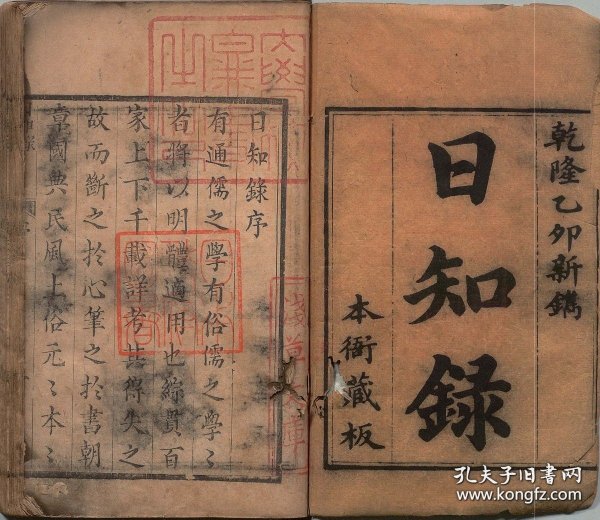 乾隆乙卯新鐫
日知録
本衙藏板
日知錄序
有通儒之學有俗儒之學〻
者將以明體適用也綜貫百
家上下千載詳考其得失之
故而斷之於心筆之於書朝
章國典民風土俗元〻本〻
孔夫子旧書网
www.kongfz.com